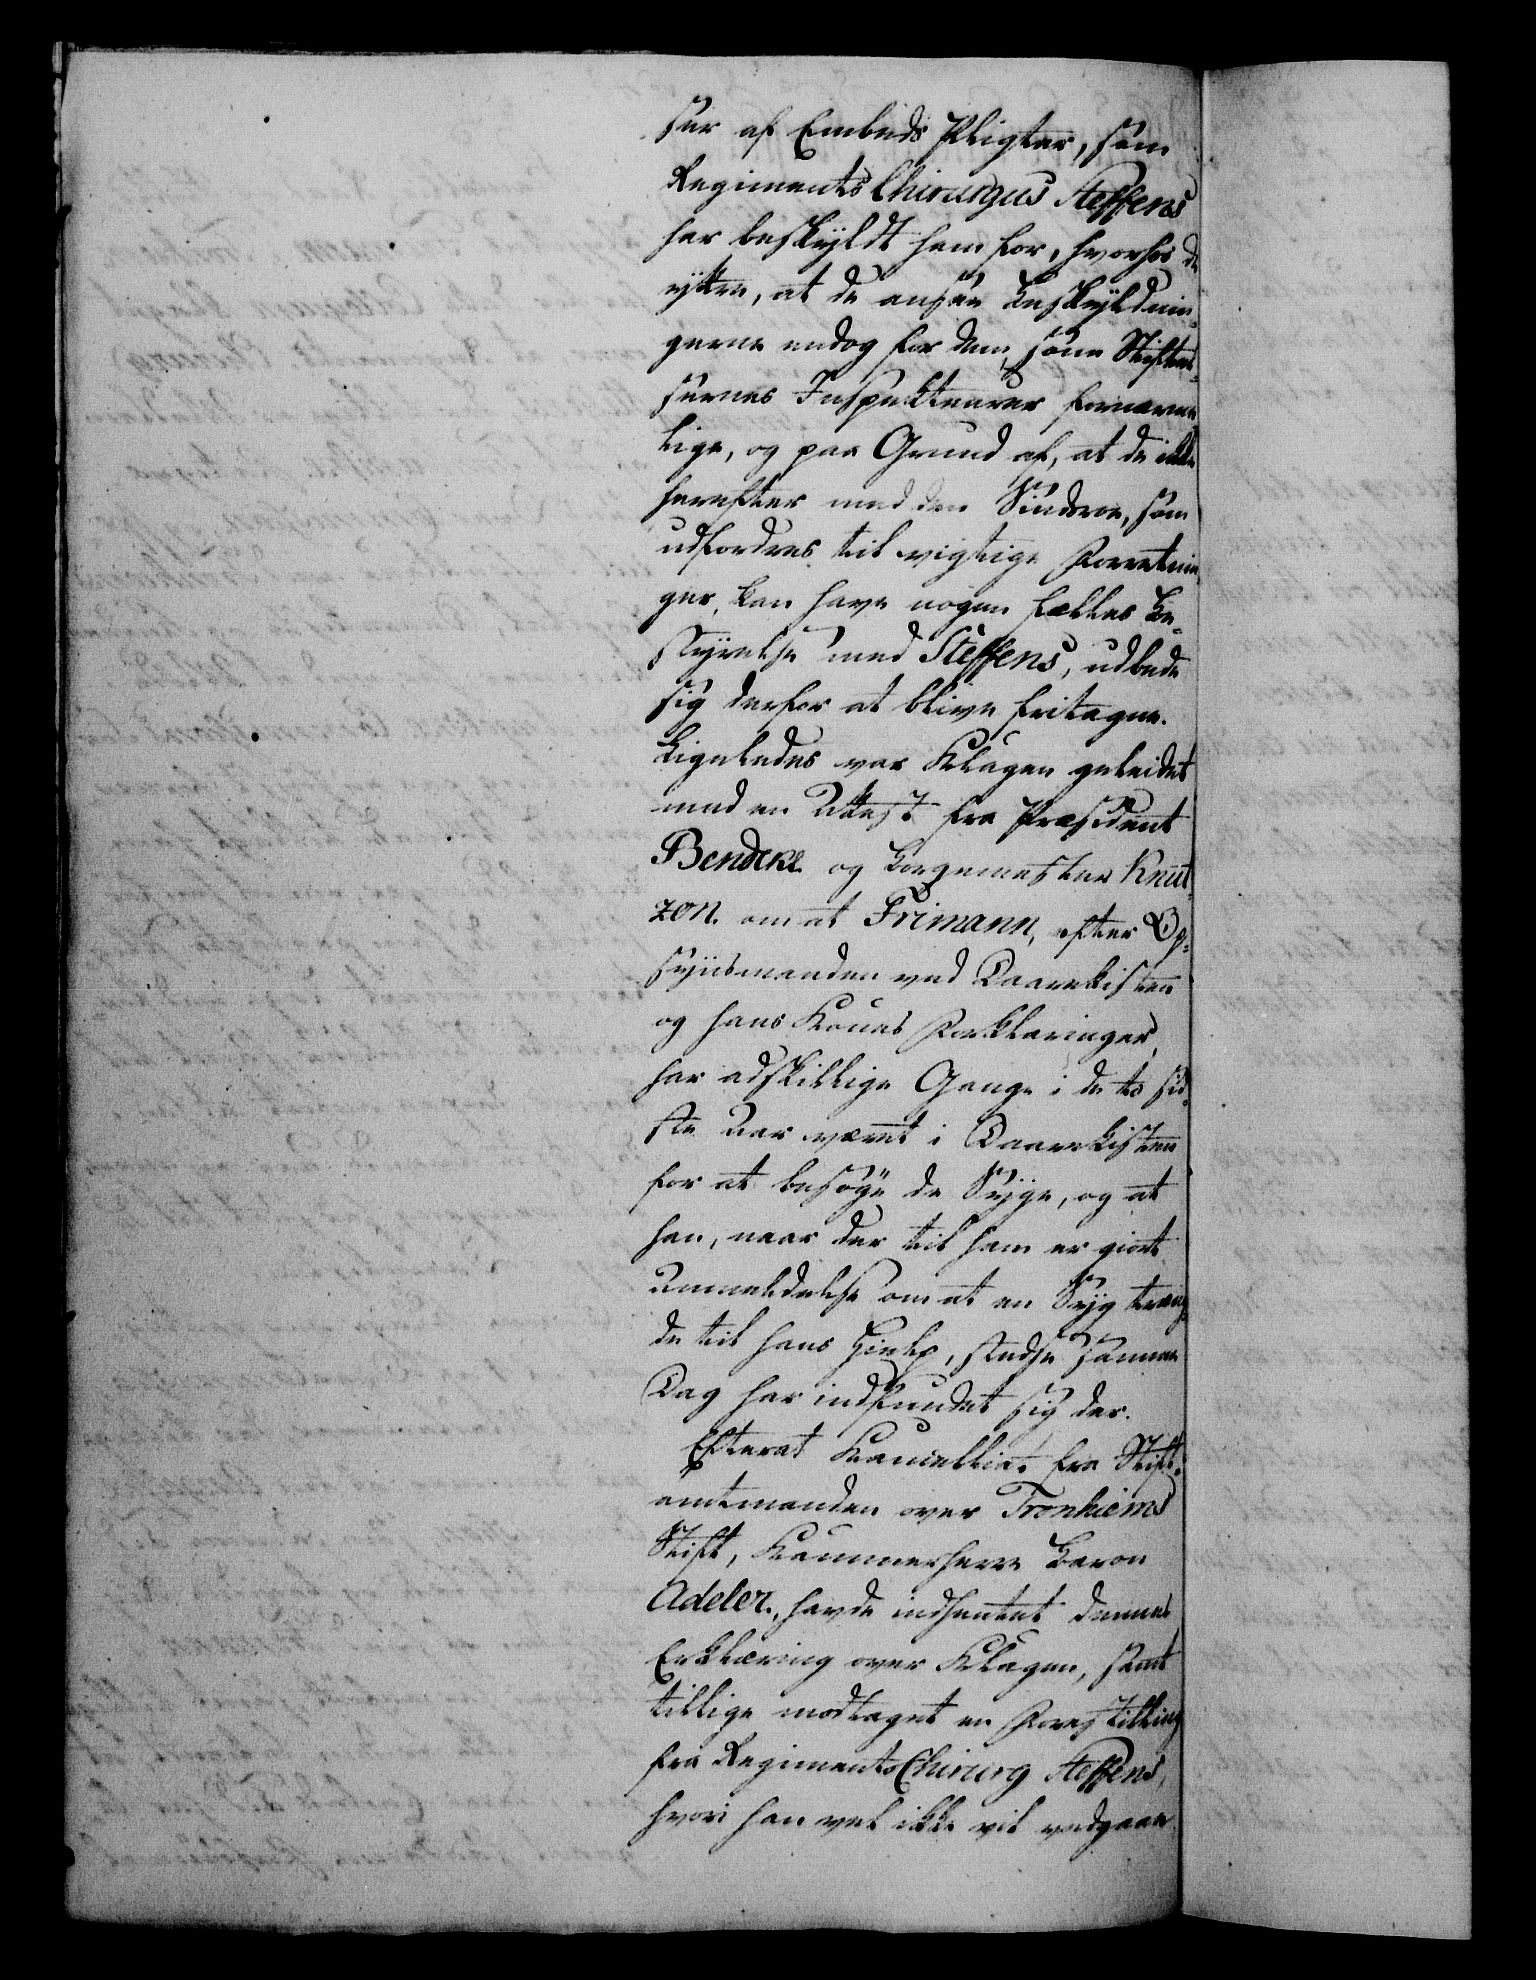 ser af Embeds Pligter, som
Regiments Chirurgus Steffens
har beskyldt ham for, hvorhos de
yttre, at de ansee Beskyldnin-
gerne endog for dem, som Stiftel-
sernes Inspekteurer fornærme-
lige, og paa Grund af, at de ikke
herefter med den Sindsroe, som
udfordres til vigtige Forretnin
ger, kan have nogen fælles Be-
styrelse med Steffens, udbede
sig derfor at blive fritagne.
Ligeledes var Klagen geleidet
med en Attest fra Præsident
Bendeke og Borgemester Knut-
zon om at Frimann, efter Op-
syns­manden ved Daarekisten
og hans Kones Forklaringer,
har adskillige Gange i de to sid-
ste Aar været i Daarekisten
for at besøge de Syge, og at
han, naar der til ham er giort
Anmeldelse om at en Syg træng-
de til hans Hielp, stedse samme
Dag har indfundet sig der.
Efterat Kancelliet fra Stift-
amtmanden over Tronhiems
Stift, Kammerherre Baron
Adeler, havde indhentet dennes
Erklæring over Klagen, samt
tillige modtaget en Forestilling
fra Regiments Chirurg Steffens,
hvori han vel ikke vil vedgaae